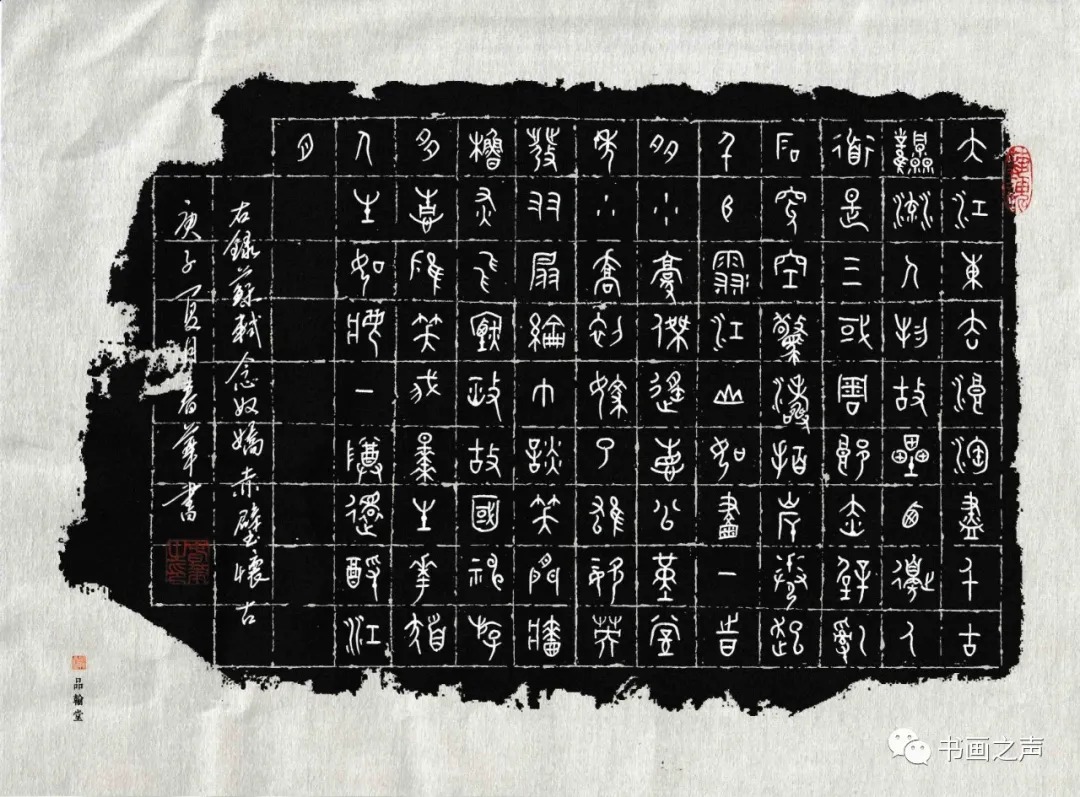 大江東去浪淘盡千古
風流人物故壘西邊人
道是三國周郎赤壁亂
石穿空驚濤拍岸捲起
千堆雪江山如畫一時
多少豪傑遙想公瑾當
年小喬初嫁了雄姿英
發羽扇綸巾談笑間檣
櫓灰飛煙滅故國神遊
多情應笑我早生華髮
人生如夢一尊還酹江
月
右錄蘇軾念奴嬌赤壁懷古
庚子夏月春華書
品翰堂
书画之声